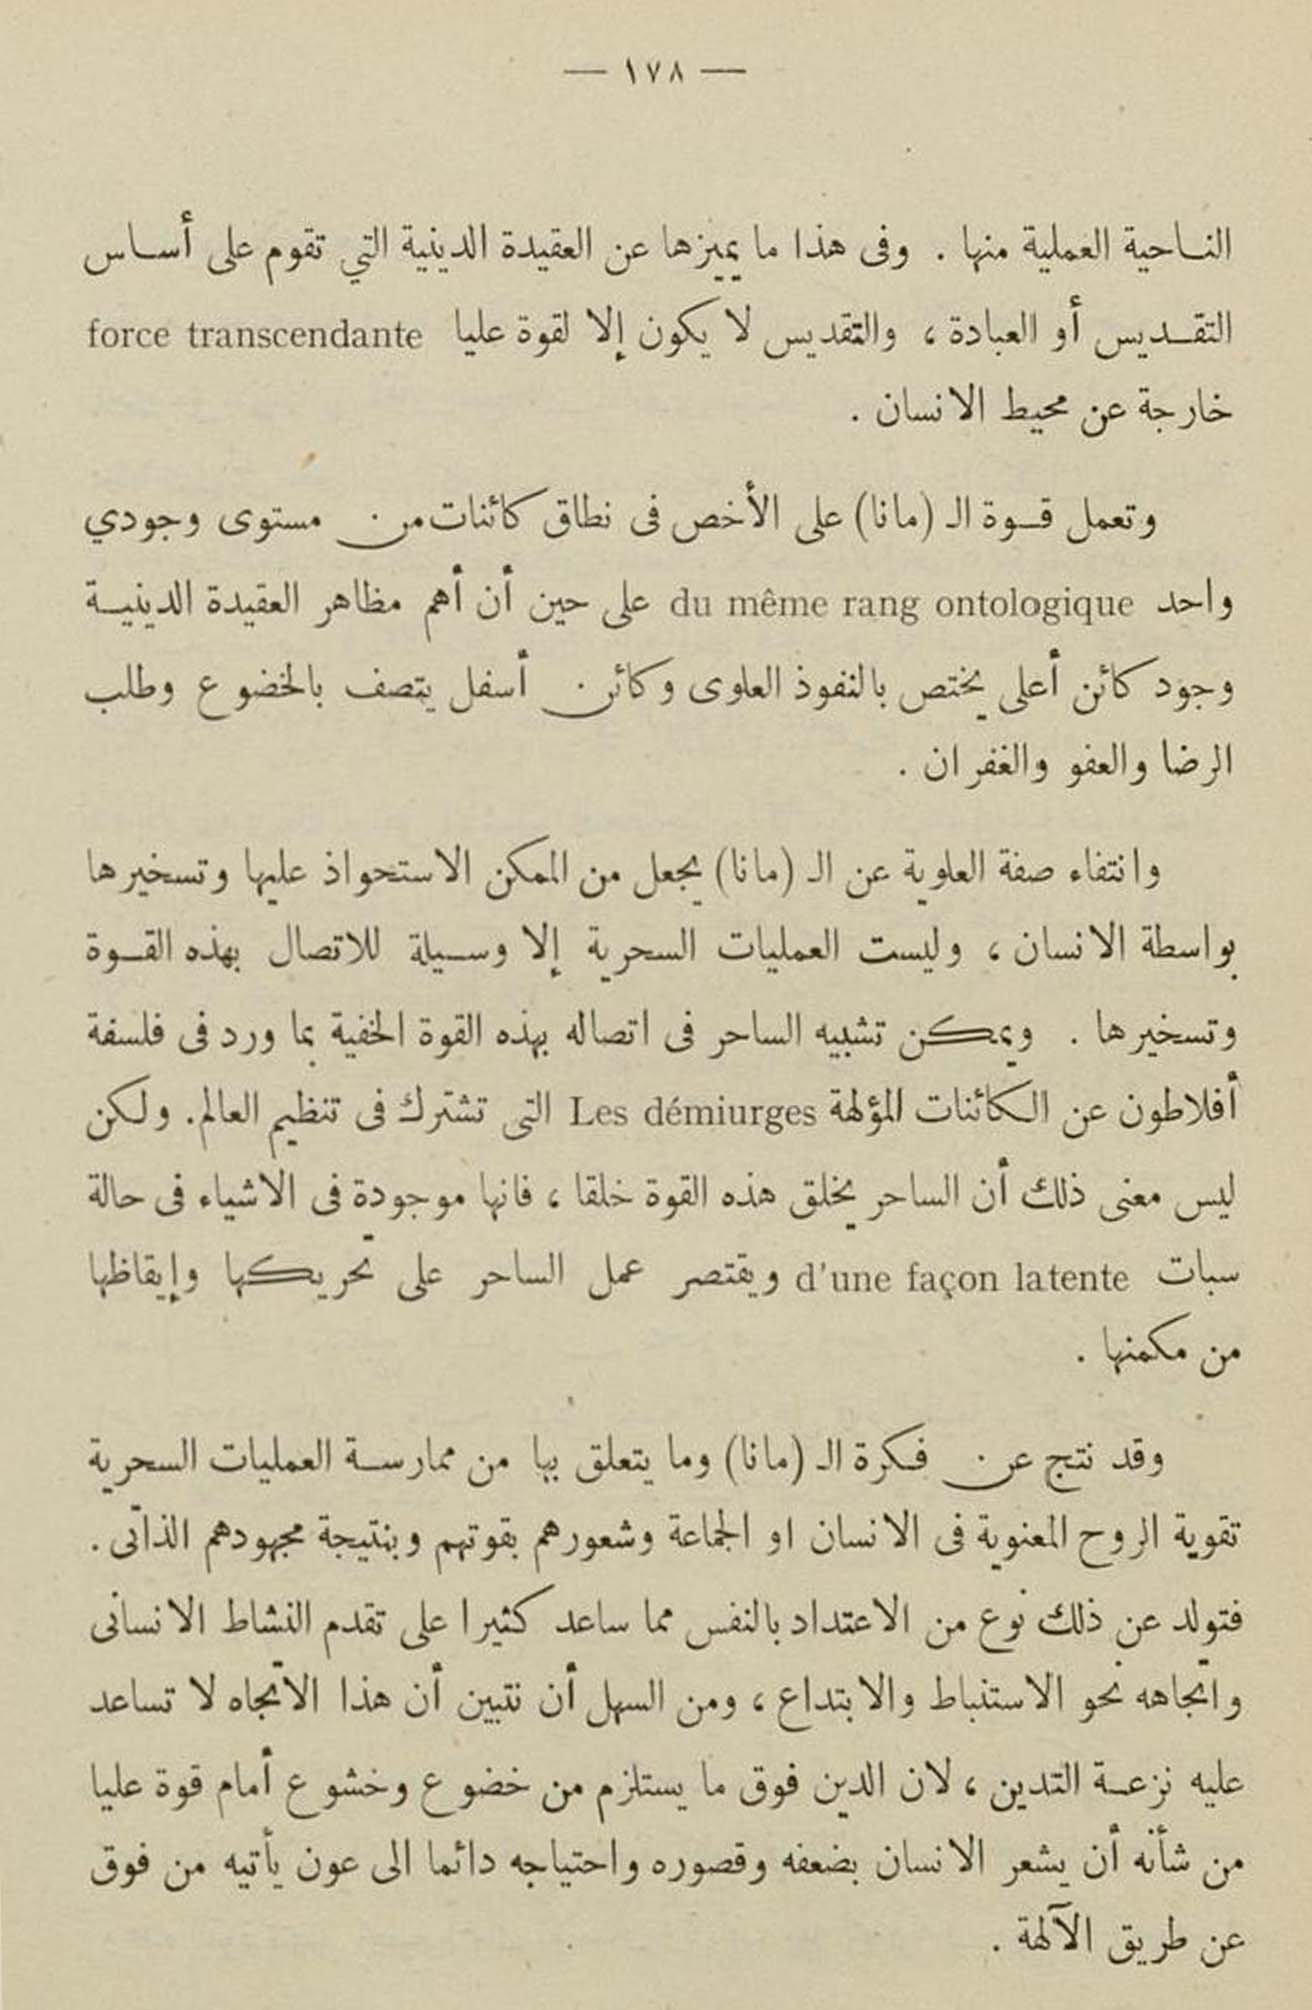 — ١٧٨ —
الناحية العملية منها . وفى هذا ما يميزها عن العقيدة الدينية التي تقوم على أساس
التقديس أو العبادة ، والتقديس لا يكون إلا لقوة عليا force transcendante
خارجة عن محيط الانسان .
وتعمل قوة الـ (مانا) على الأخص فى نطاق كائنات من مستوى وجودي
واحد du même rang ontologique على حين أن أهم مظاهر العقيدة الدينية
وجود كائن أعلى يختص بالنفوذ العلوى وكائن أسفل يتصف بالخضوع وطلب
الرضا والعفو والغفران .
وانتفاء صفة العلوية عن الـ (مانا) يجعل من الممكن الاستحواذ عليها وتسخيرها
بواسطة الانسان ، وليست العمليات السحرية إلا وسيلة للاتصال بهذه القوة
وتسخيرها . ويمكن تشبيه الساحر فى اتصاله بهذه القوة الخفية بما ورد فى فلسفة
أفلاطون عن الكائنات المؤلهة Les démiurges التى تشترك فى تنظيم العالم. ولكن
ليس معنى ذلك أن الساحر يخلق هذه القوة خلقا ، فانها موجودة فى الاشياء فى حالة
سبات d'une façon latente ويقتصر عمل الساحر على تحريكها وإيقاظها
من مكمنها .
وقد نتج عن فكرة الـ (مانا) وما يتعلق بها من ممارسة العمليات السحرية
تقوية الروح المعنوية فى الانسان او الجماعة وشعورهم بقوتهم وبنتيجة مجهودهم الذاتى .
فتولد عن ذلك نوع من الاعتداد بالنفس مما ساعد كثيرا على تقدم النشاط الانسانى
واتجاهه نحو الاستنباط والابتداع ، ومن السهل أن نتبين أن هذا الاتجاه لا تساعد
عليه نزعة التدين ، لان الدين فوق ما يستلزم من خضوع وخشوع أمام قوة عليا
من شأنه أن يشعر الانسان بضعفه وقصوره واحتياجه دائما الى عون يأتيه من فوق
عن طريق الآلهة .